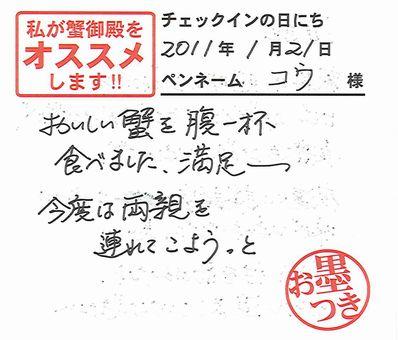 私が蟹御殿を
オススメ
します!!
チェックインの日にち
2011年 1月21日
ペンネーム コウ 様
おいしい蟹を腹一杯
食べました、満足ー
今度は両親を
連れてこようっと
お墨つき